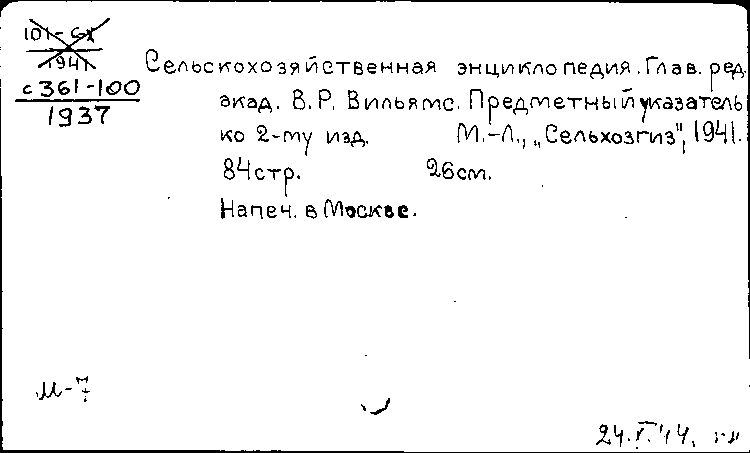 101-6х
1941
с361-100
1937
Сельскохозяйственная энциклопедия. Глав. ред.
акад. В.Р. Вильямс. Предметный указатель
ко 2-му изд. М.-Л., „Сельхозгиз", 1941.
84стр. 26см.
Напеч. в Москве.
М-7
24.V.44.